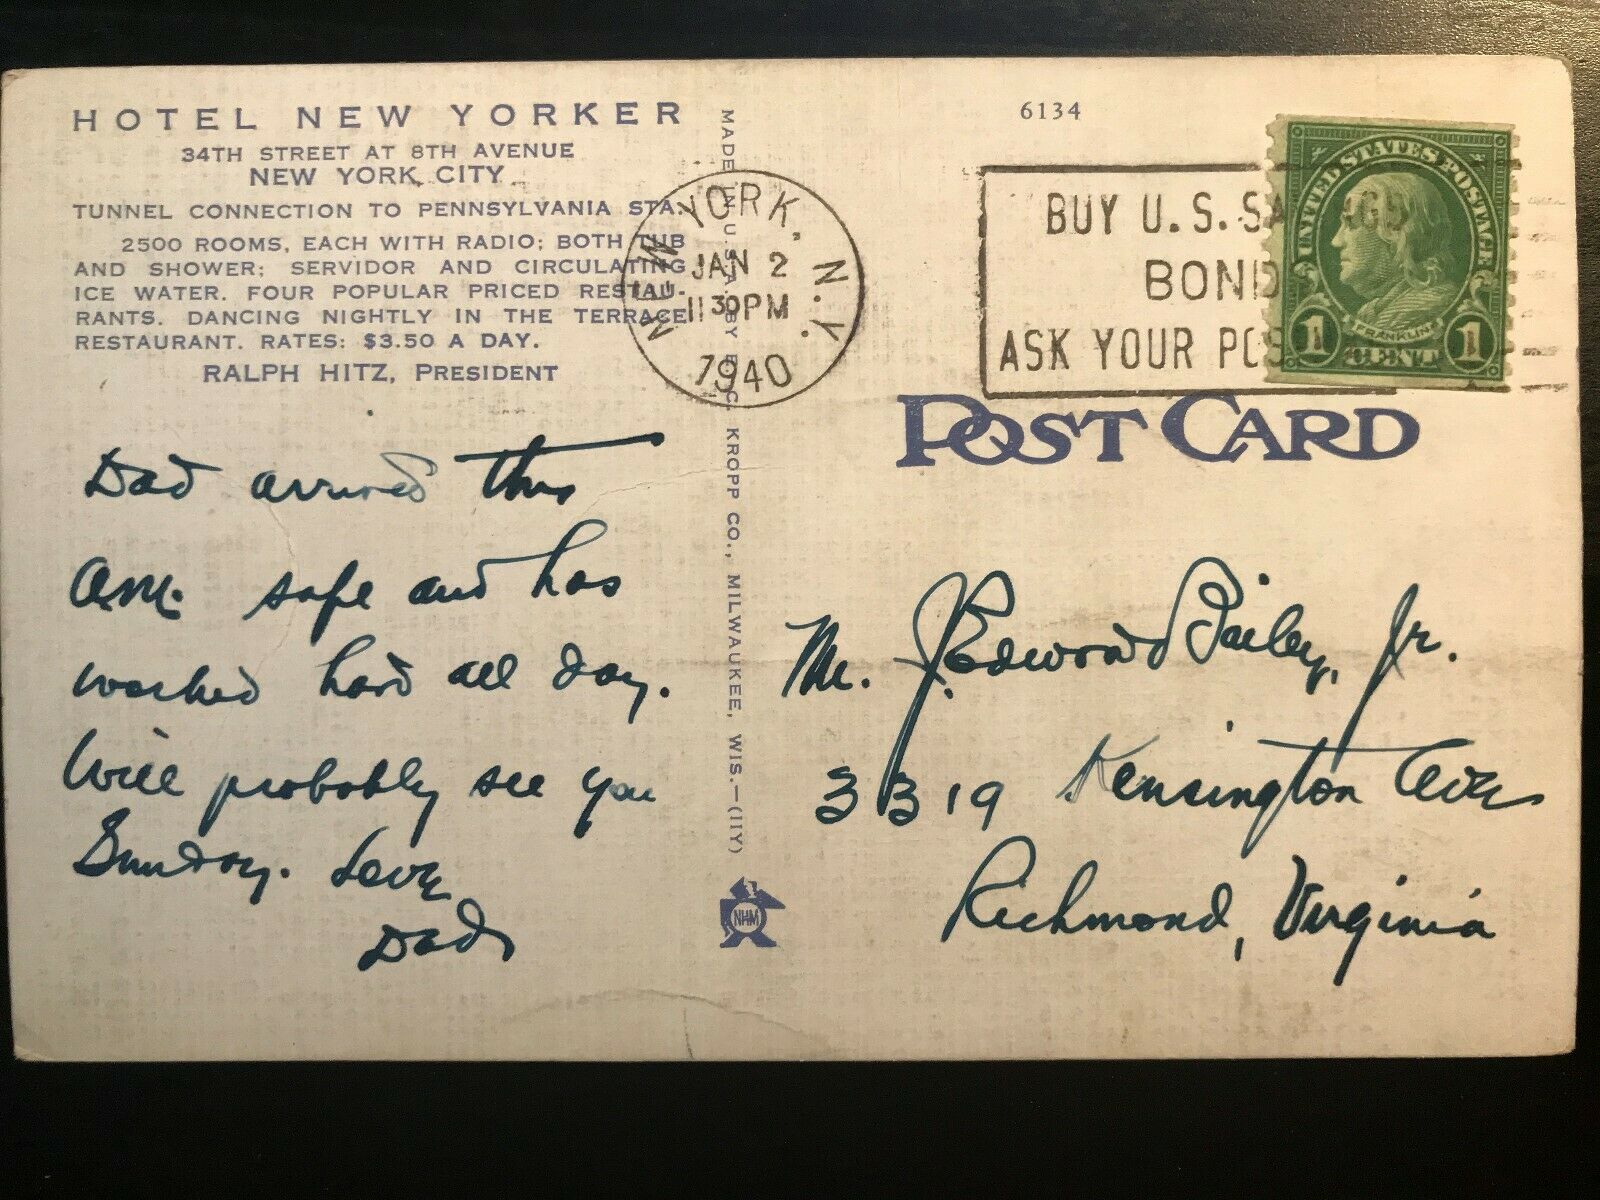 HOTEL NEW YORKER
34TH STREET AT 8TH AVENUE
NEW YORK CITY
TUNNEL CONNECTION TO PENNSYLVANIA STA.
2500 ROOMS, EACH WITH RADIO; BOTH TUB
AND SHOWER; SERVIDOR AND CIRCULATING
ICE WATER. FOUR POPULAR PRICED RESTAU-
RANTS. DANCING NIGHTLY IN THE TERRACE
RESTAURANT. RATES: $3.50 A DAY.
RALPH HITZ, PRESIDENT
Dad arrived this
a.m. safe and has
worked hard all day.
Will probably see you
Sunday. Love
Dad
MADE IN U.S.A. BY E. C. KROPP CO., MILWAUKEE, WIS.—(11Y)
NHM
NEW YORK, N.Y.
JAN 2
11 30 PM
1940
6134
BUY U.S. SAVINGS
BOND
ASK YOUR POS
UNITED STATES POSTAGE
FRANKLIN
1 CENT 1
POST CARD
Mr. J. Edward Bailey, Jr.
3319 Kensington Ave
Richmond, Virginia